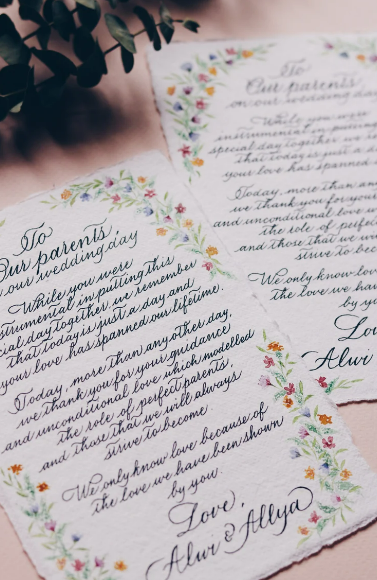 To
Our parents,
on our wedding day
While you were
instrumental in putting this
special day together, we remember
that today is just a day and
your love has spanned our lifetime.
Today, more than any other day,
we thank you for your guidance
and unconditional love which modelled
the role of perfect parents,
and those that we will always
strive to become
We only know love because of
the love we have been shown
by you.
Love,
Alwi & Allya
To
Our parents
on our wedding day
While you were
instrumental in putting
special day together, we
that today is just a
your love has spanned
Today, more than any
we thank you for your
and unconditional love
the role of perfect
and those that we will
strive to
We only know love
the love we have
by you
Love
Alwi